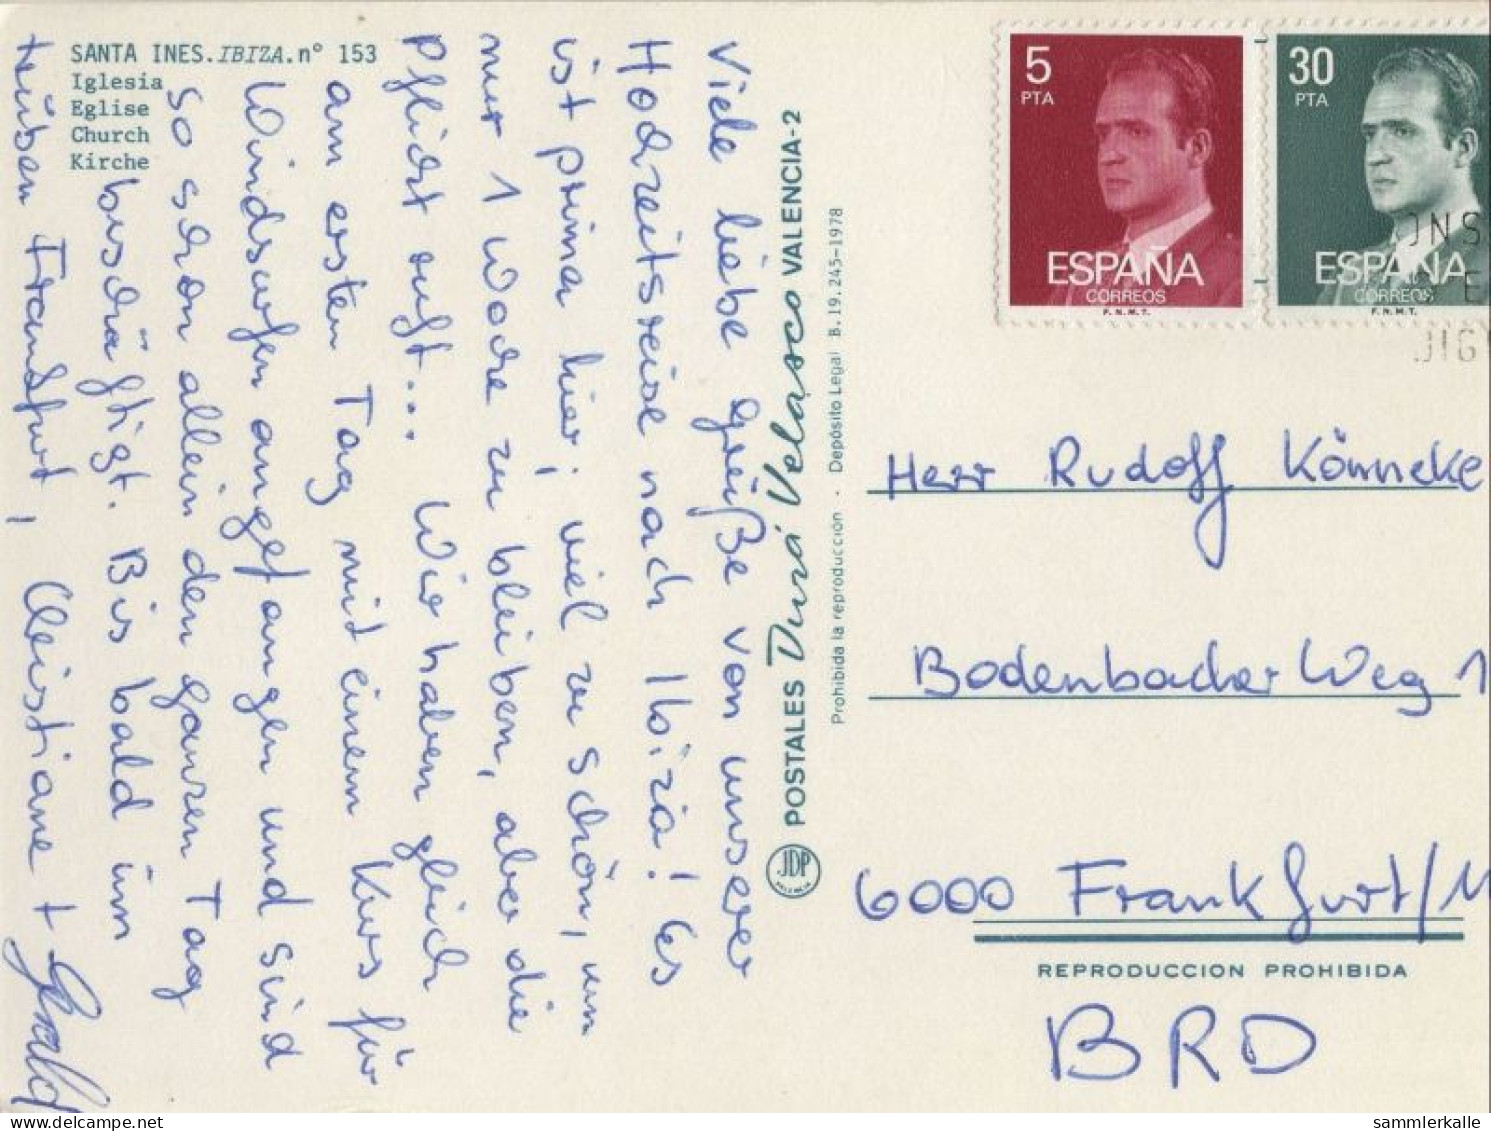 SANTA INES. IBIZA. n° 153
Iglesia
Eglise
Church
Kirche
Viele liebe Grüße von unserer
Hochzeitsreise nach Ibiza! Es
ist prima hier; viel zu schön, um
nur 1 Woche zu bleiben, aber die
Pflicht ruft... Wir haben gleich
am ersten Tag mit einem Kurs für
Windsurfen angefangen und sind
so schon allein den ganzen Tag
beschäftigt. Bis bald im
trüben Frankfurt, Christiane +
POSTALES Durá Velasco VALENCIA-2
JDP
VALENCIA
Prohibida la reproducción · Depósito Legal B. 19.245-1978
5
PTA
ESPAÑA
CORREOS
F.N.M.T.
30
PTA
ESPAÑA
CORREOS
F.N.M.T.
Herr Rudolf Könneke
Bodenbacher Weg 1
6000 Frankfurt/M
REPRODUCCION PROHIBIDA
BRD
sammlerkalle